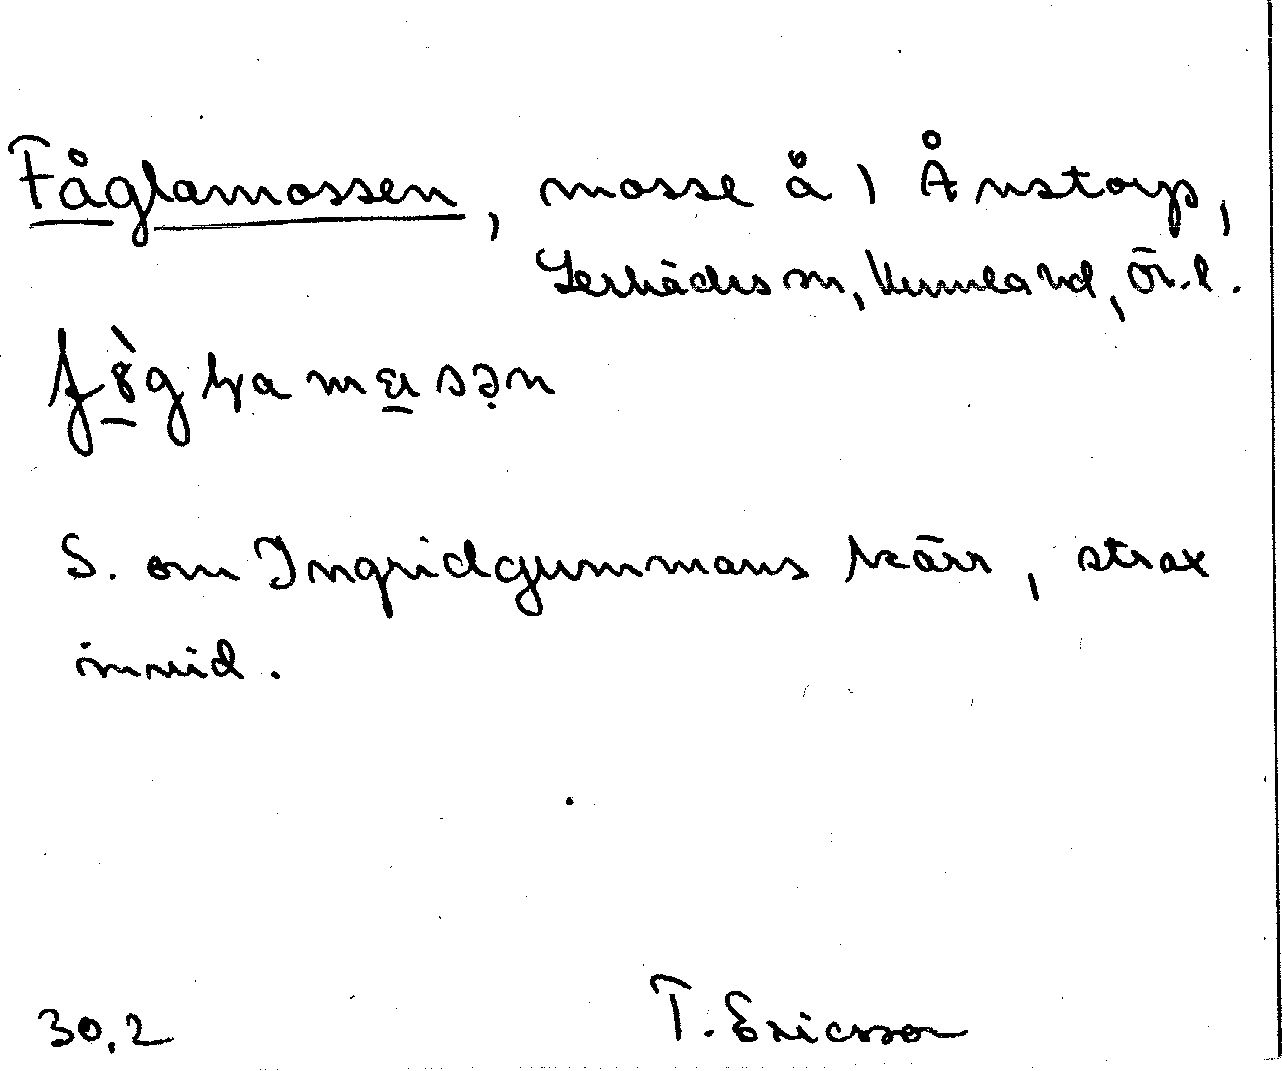 Fåglamossen, mosse å 1 Ånstorp,
Lerbäcks sn, Kumla hd, Ör. l.
S. om Ingridgummans kärr, strax
invid.
30.2 T. Ericsson